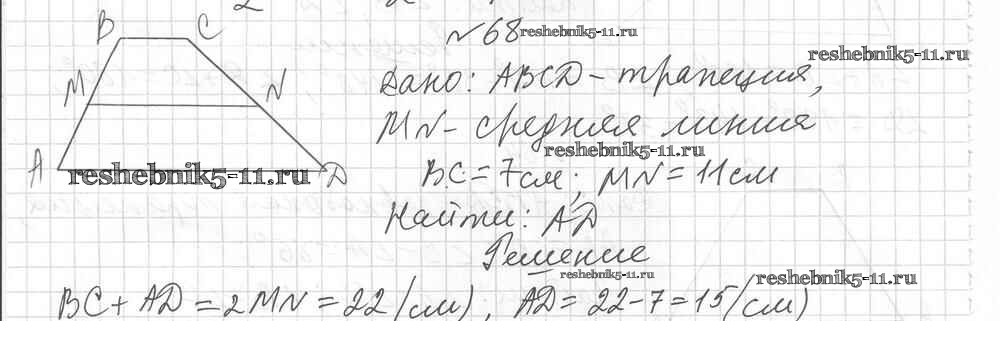 №68
reshebnik5-11.ru
reshebnik5-11.ru
B C
M N
A D
reshebnik5-11.ru
Дано: ABCD - трапеция,
MN - средняя линия
reshebnik5-11.ru
BC = 7см; MN = 11см
Найти: AD
Решение
reshebnik5-11.ru
reshebnik5-11.ru
BC + AD = 2MN = 22 (см); AD = 22 - 7 = 15 (см)